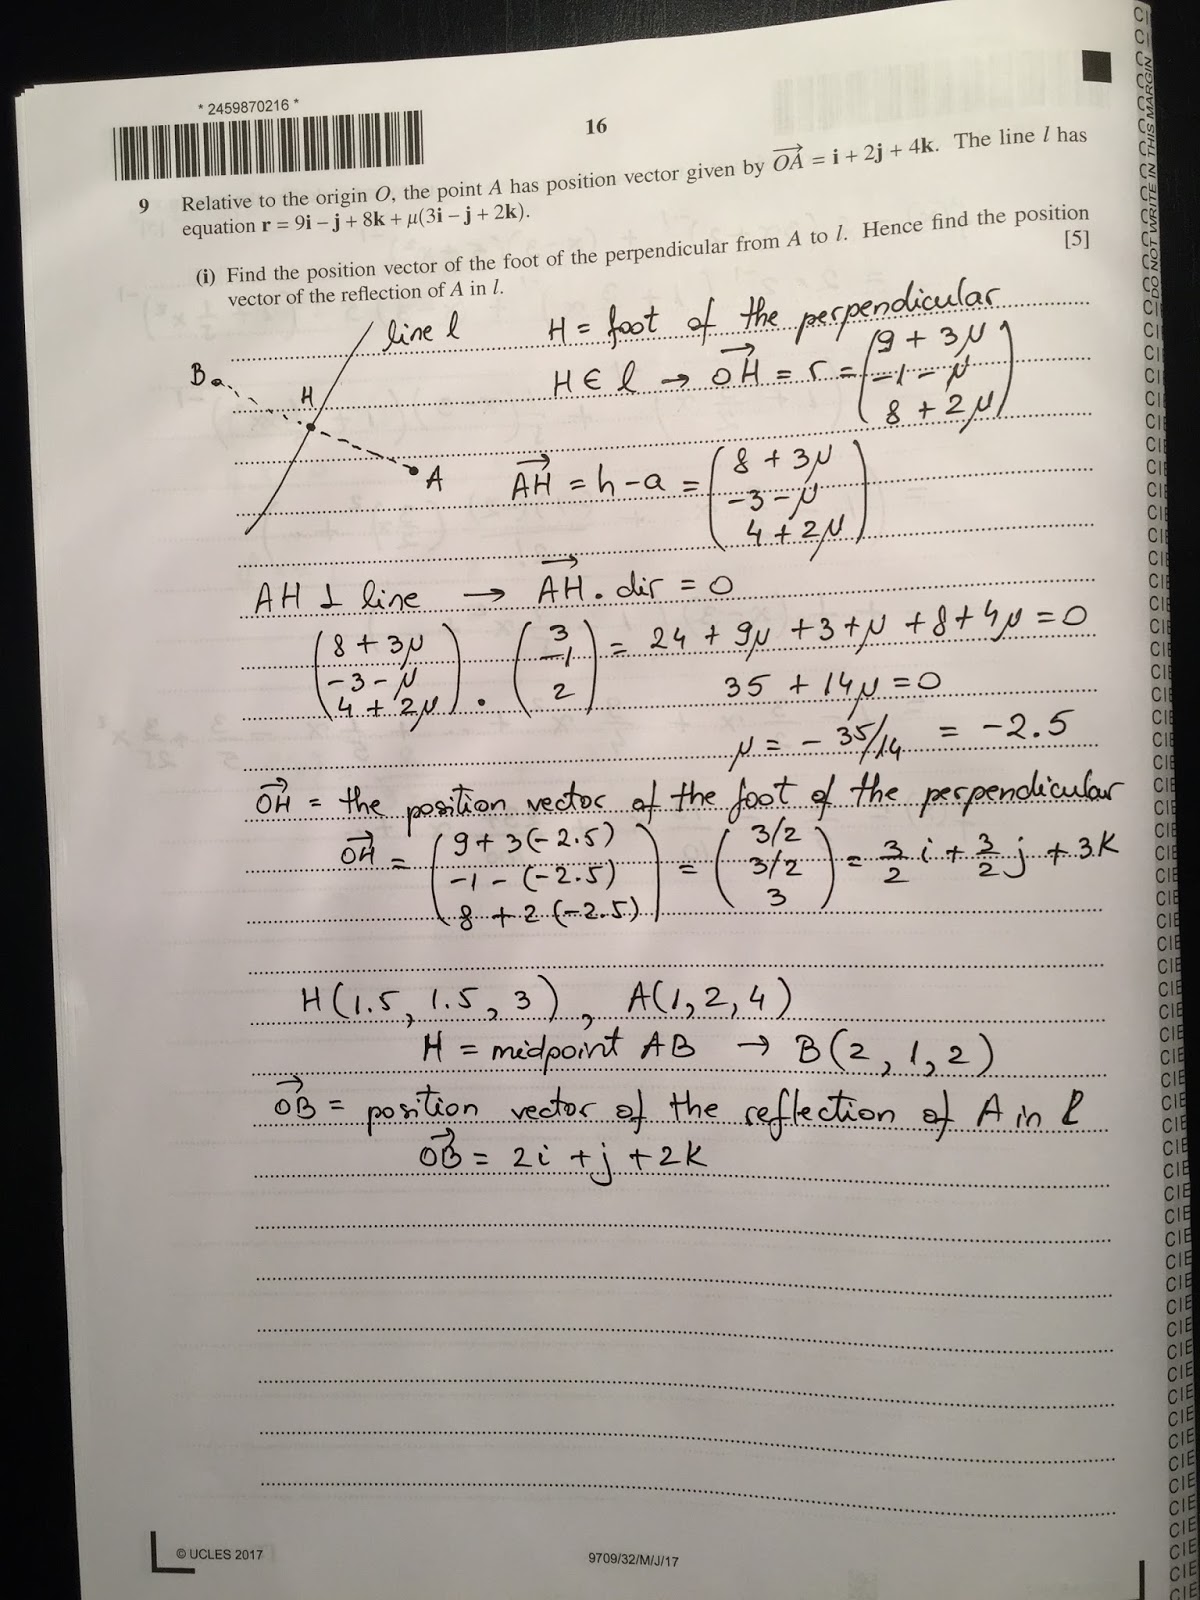 * 2459870216 *
16
9 Relative to the origin O, the point A has position vector given by OA→ = i + 2j + 4k. The line l has
equation r = 9i – j + 8k + μ(3i – j + 2k).
(i) Find the position vector of the foot of the perpendicular from A to l. Hence find the position
vector of the reflection of A in l. [5]
line l
H = foot of the perpendicular
B
H
A
H ∈ l → OH→ = r = (9 + 3μ
-1 - μ
8 + 2μ)
AH→ = h - a = (8 + 3μ
-3 - μ
4 + 2μ)
AH ⊥ line → AH→ . dir = 0
(8 + 3μ
-3 - μ
4 + 2μ) . (3
-1
2) = 24 + 9μ + 3 + μ + 8 + 4μ = 0
35 + 14μ = 0
μ = - 35/14 = -2.5
OH→ = the position vector of the foot of the perpendicular
OH→ = (9 + 3(-2.5)
-1 - (-2.5)
8 + 2(-2.5)) = (3/2
3/2
3) = 3/2 i + 3/2 j + 3k
H(1.5, 1.5, 3), A(1, 2, 4)
H = midpoint AB → B(2, 1, 2)
OB→ = position vector of the reflection of A in l
OB→ = 2i + j + 2k
© UCLES 2017
9709/32/M/J/17
DO NOT WRITE IN THIS MARGIN